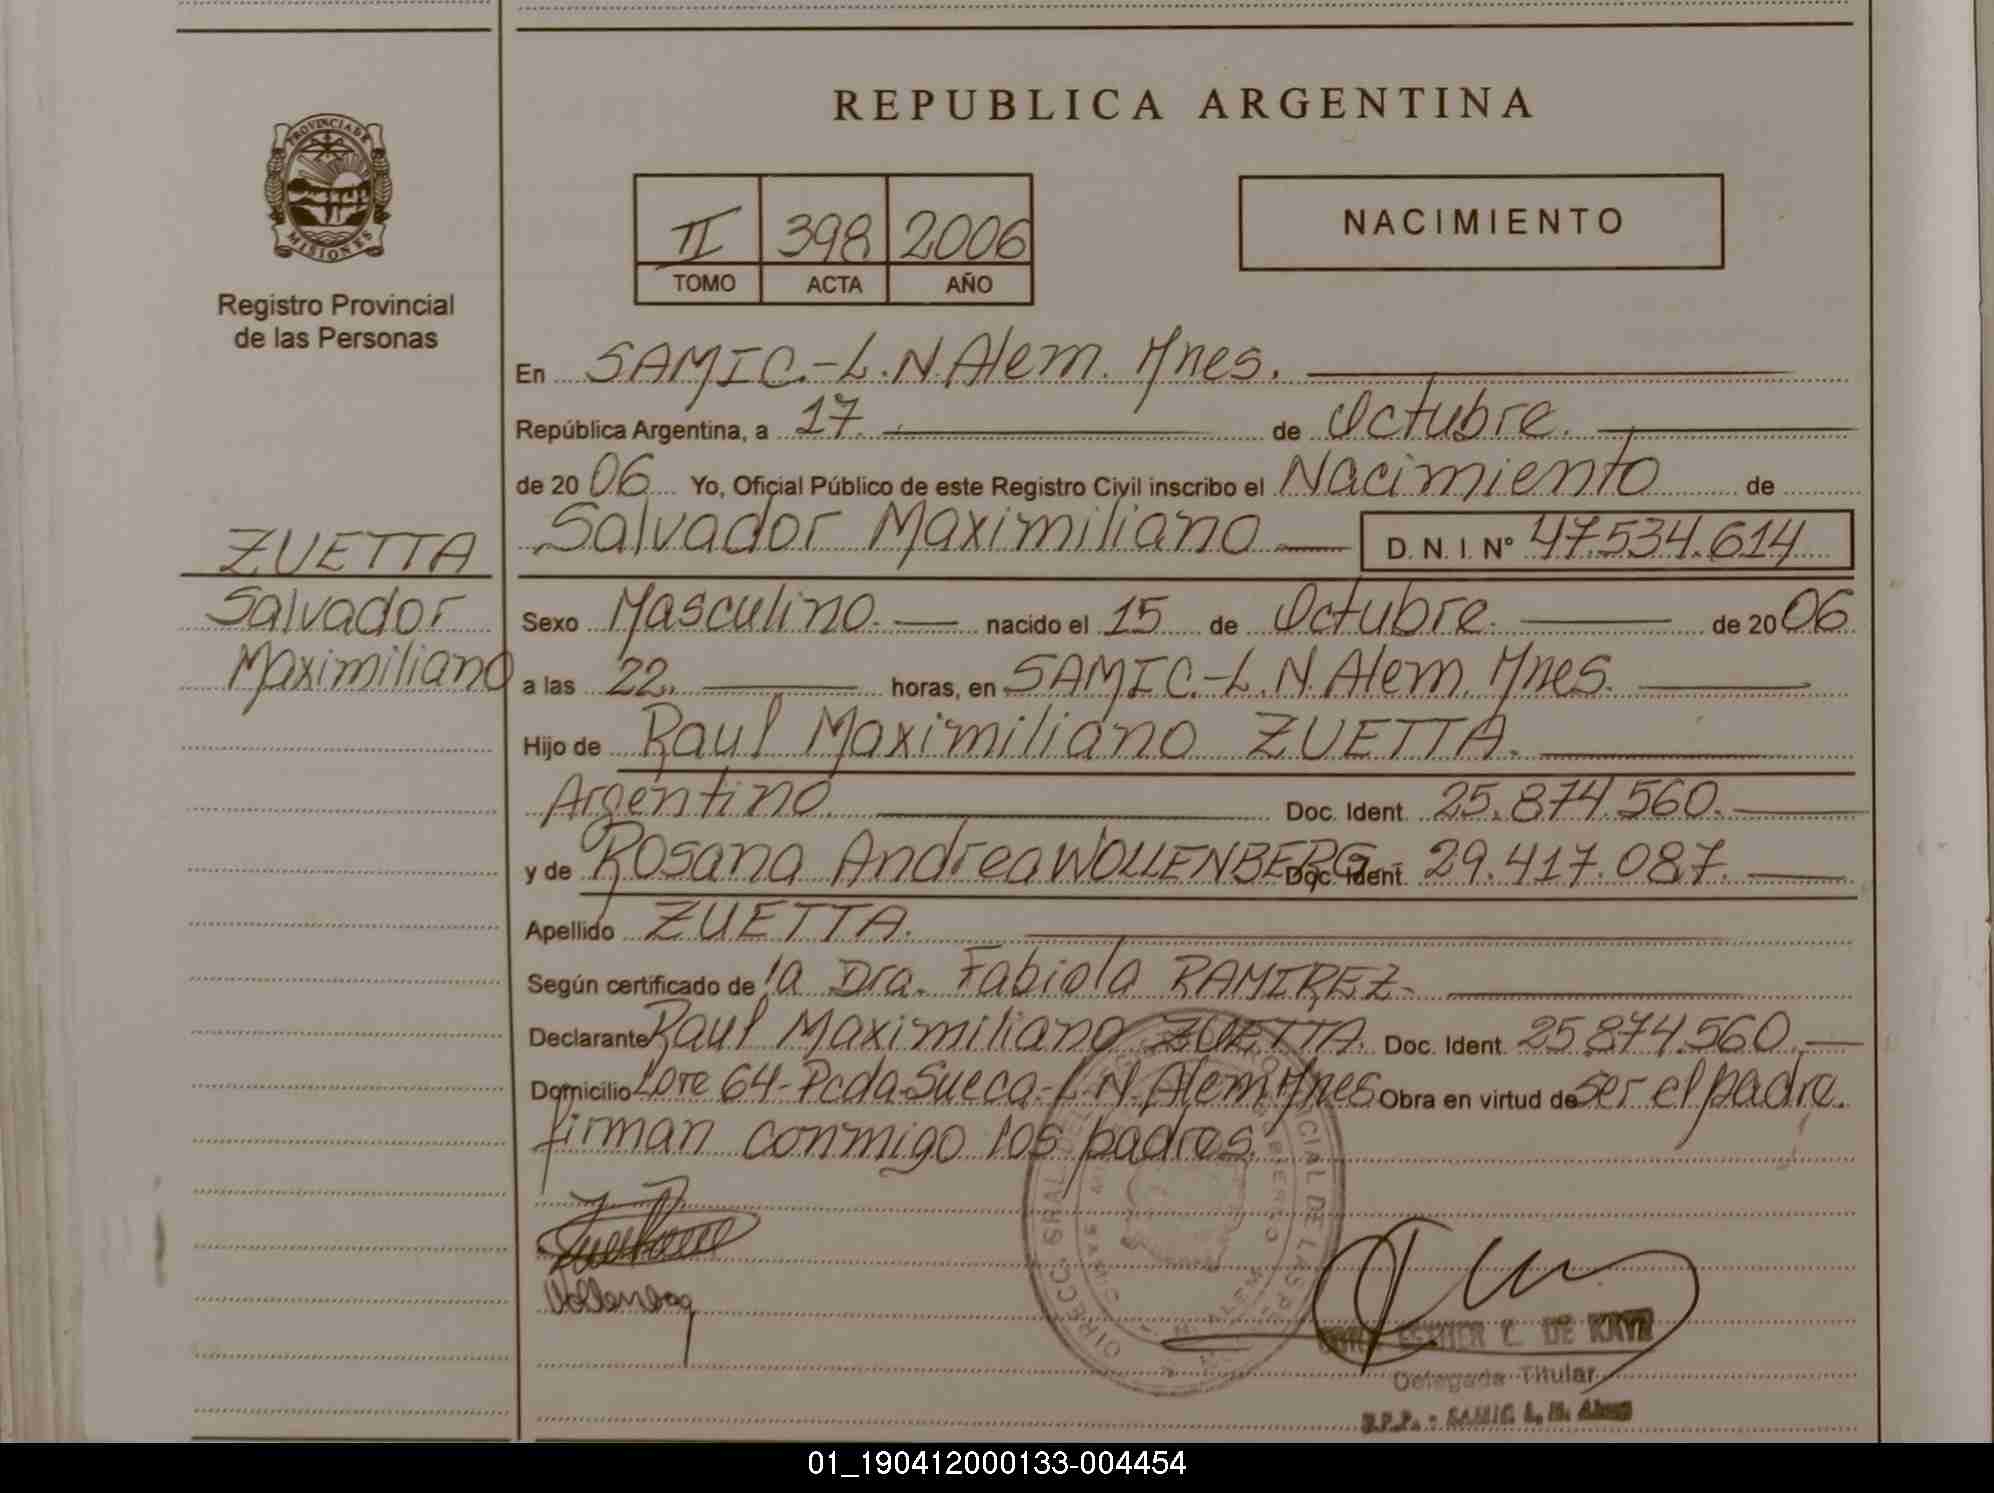 REPUBLICA ARGENTINA
PROVINCIA DE MISIONES
Registro Provincial
de las Personas
II 398 2006
TOMO ACTA AÑO
NACIMIENTO
En SAMIC.-L.N.Alem. Mnes.
República Argentina, a 17. de Octubre.
de 2006 Yo, Oficial Público de este Registro Civil inscribo el Nacimiento de
Salvador Maximiliano D. N. I. N° 47.534.614
ZUETTA
Salvador
Maximiliano
Sexo Masculino. nacido el 15 de Octubre. de 2006
a las 22. horas, en SAMIC.-L.N.Alem. Mnes.
Hijo de Raul Maximiliano ZUETTA.
Argentino. Doc. Ident. 25.874.560.
y de Rosana Andrea WOLLENBERG. Doc. Ident. 29.417.087.
Apellido ZUETTA.
Según certificado de la Dra. Fabiola RAMIREZ.
Declarante Raul Maximiliano ZUETTA. Doc. Ident. 25.874.560.
Domicilio Lote 64-Pcda.Sueca-L.N.Alem Mnes Obra en virtud de ser el padre.
firman conmigo los padres.
Wollenberg
ESTHER C. DE
Delegada Titular
R.P.P. - SAMIC L. N. Alem
01_190412000133-004454